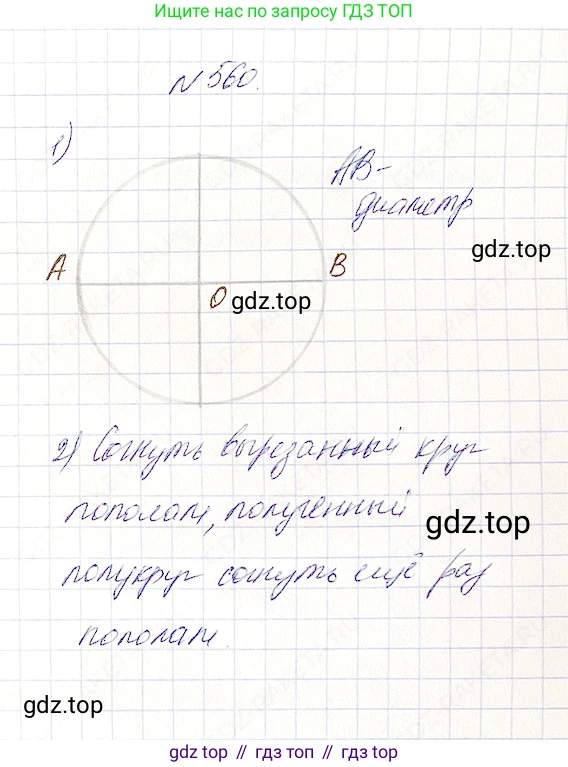 Ищите нас по запросу ГДЗ ТОП
№ 560.
1)
AB-
диаметр
gdz.top
A
B
O
gdz.top
2) Согнуть вырезанный круг
пополам, полученный
gdz.top
полукруг согнуть ещё раз
пополам.
gdz.top
gdz top // гдз топ // gdz.top